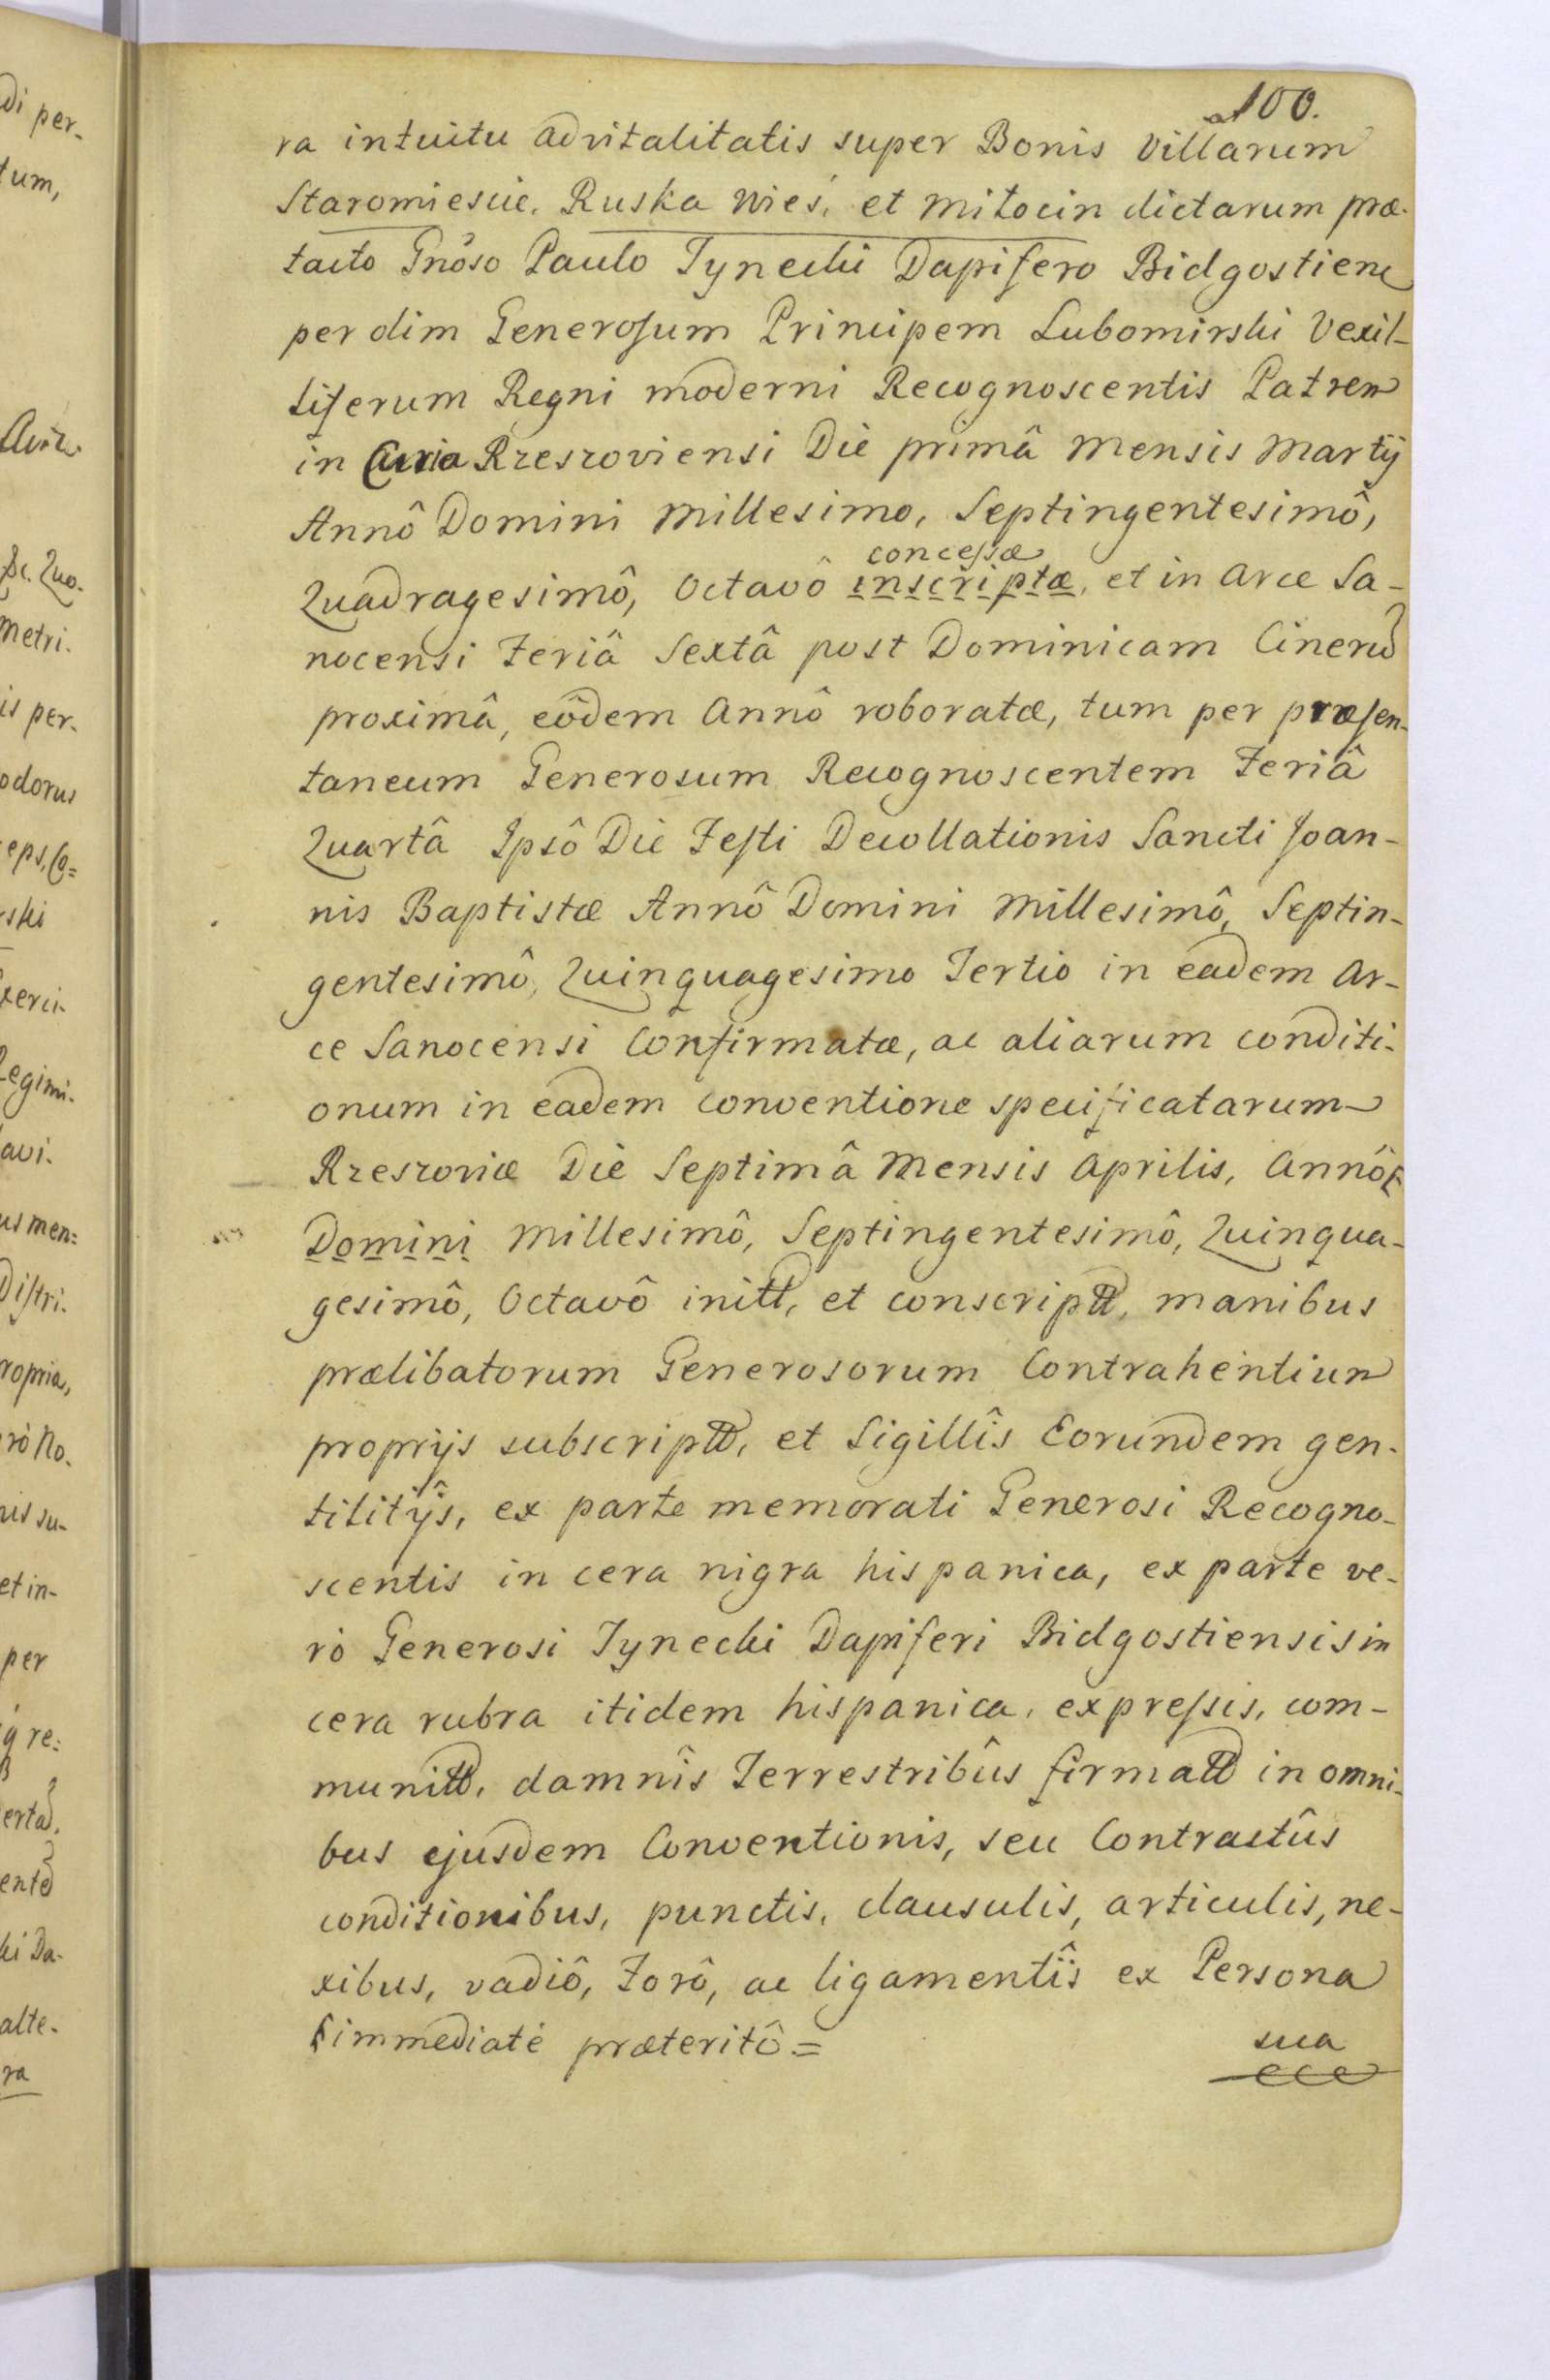 100.
ra intuitu advitalitatis super Bonis Villarum
Staromiescie. Ruska wieś, et Miłocin dictarum præ-
tacto Gnôso Paulo Tynecki Dapifero Bidgostien
per olim Generosum Principem Lubomirski Vexil-
liferum Regni moderni Recognoscentis Patrem
in Curia Rzeszoviensi Die primâ Mensis Martij
Annô Domini Millesimo, Septingentesimô,
concessæ
Quadragesimô, Octavô inscriptæ, et in Arce Sa-
nocensi Feriâ Sextâ post Dominicam Cineru
proximâ, eôdem Annô roboratæ, tum per præsen-
taneum Generosum Recognoscentem Feriâ
Quartâ Ipsô Die Festi Decollationis Sancti Joan-
nis Baptistæ Annô Domini Millesimô, Septin-
gentesimô, Quinquagesimo Tertio in eadem Ar-
ce Sanocensi Confirmatæ, ac aliarum conditi-
onum in eadem conventione specificatarum
Rzeszoviæ Die Septimâ Mensis Aprilis, Annô
Domini Millesimô, Septingentesimô, Quinqua-
gesimô, Octavô initt, et conscriptt, manibus
prælibatorum Generosorum Contrahentium
proprijs subscriptt, et Sigillîs Eorundem gen-
tilitijs, ex parte memorati Generosi Recogno-
scentis in cera nigra hispanica, ex parte ve-
rò Generosi Tynecki Dapiferi Bidgostiensis in
cera rubra itidem hispanica, expressis, com-
munitt, damnîs Terrestribûs firmatt in omni-
bus ejusdem Conventionis, seu Contractûs
conditionibus, punctis, clausulis, articulis, ne-
xibus, vadiô, forô, ac ligamentîs ex Persona
immediatè præteritô =
sua